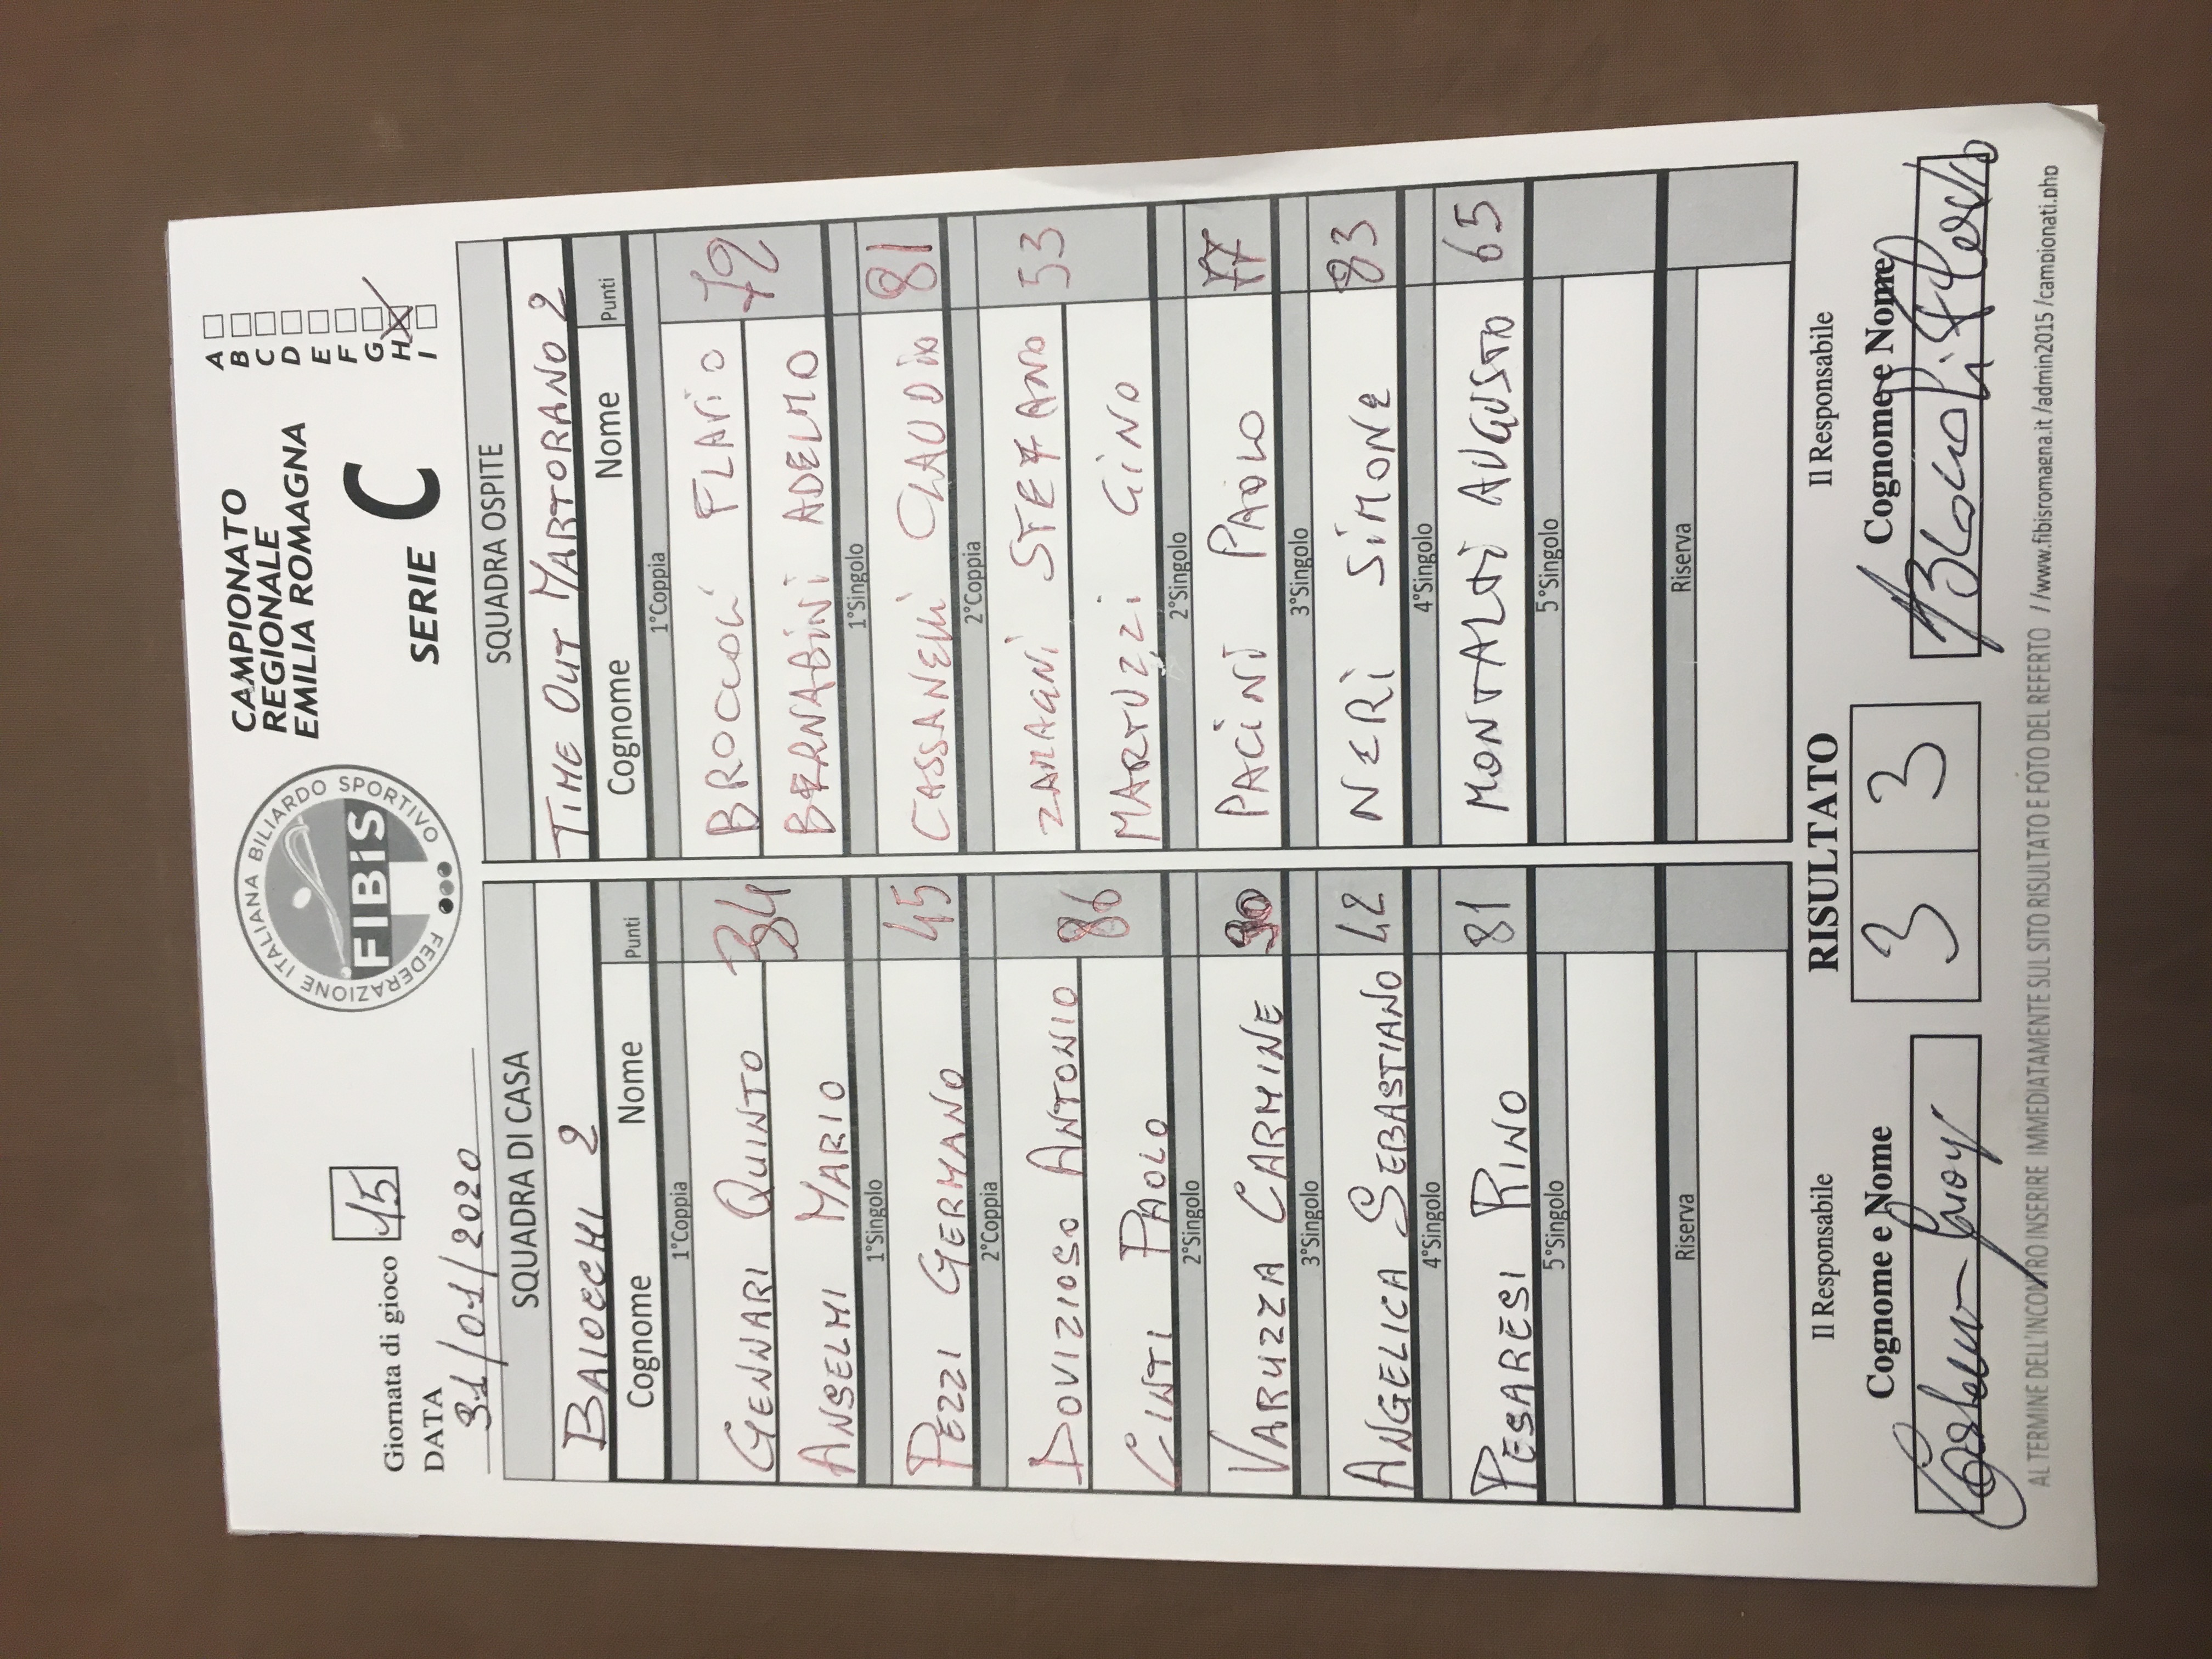 Giornata di gioco 15
DATA
31/01/2020
FEDERAZIONE ITALIANA BILIARDO SPORTIVO
FIBiS
CAMPIONATO
REGIONALE
EMILIA ROMAGNA
SERIE C
A
B
C
D
E
F
G
H
I
SQUADRA DI CASA
BAIOCCHI 2
Cognome Nome Punti
1°Coppia
GENNARI QUINTO 34
ANSELMI MARIO
1°Singolo
PEZZI GERMANO 45
2°Coppia
DOVIZIOSO ANTONIO 86
CINTI PAOLO
2°Singolo
VARUZZA CARMINE 90
3°Singolo
ANGELICA SEBASTIANO 42
4°Singolo
PESARESI RINO 81
5°Singolo
Riserva
SQUADRA OSPITE
TIME OUT MARTORANO 2
Cognome Nome Punti
1°Coppia
BROCCOLI FLAVIO 72
BERNABINI ADELMO
1°Singolo
CASSANELLI CLAUDIO 81
2°Coppia
ZAMAGNI STEFANO 53
MARTUZZI GINO
2°Singolo
PACINI PAOLO 77
3°Singolo
NERI SIMONE 83
4°Singolo
MONTALTI AUGUSTO 65
5°Singolo
Riserva
Il Responsabile
Cognome e Nome
RISULTATO
3 3
Il Responsabile
Cognome e Nome
AL TERMINE DELL'INCONTRO INSERIRE IMMEDIATAMENTE SUL SITO RISULTATO E FOTO DEL REFERTO //www.fibisromagna.it/admin2015/campionati.php